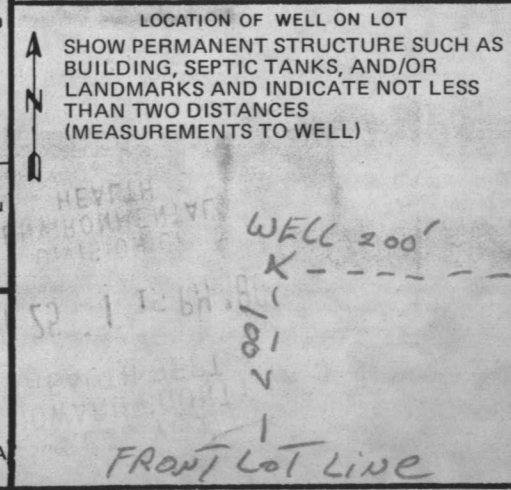 LOCATION OF WELL ON LOT
SHOW PERMANENT STRUCTURE SUCH AS
BUILDING, SEPTIC TANKS, AND/OR
LANDMARKS AND INDICATE NOT LESS
THAN TWO DISTANCES
(MEASUREMENTS TO WELL)
N
HEALTH
ENVIRONMENTAL
DIVISION OF
WELL 200'
FRONT LOT LINE